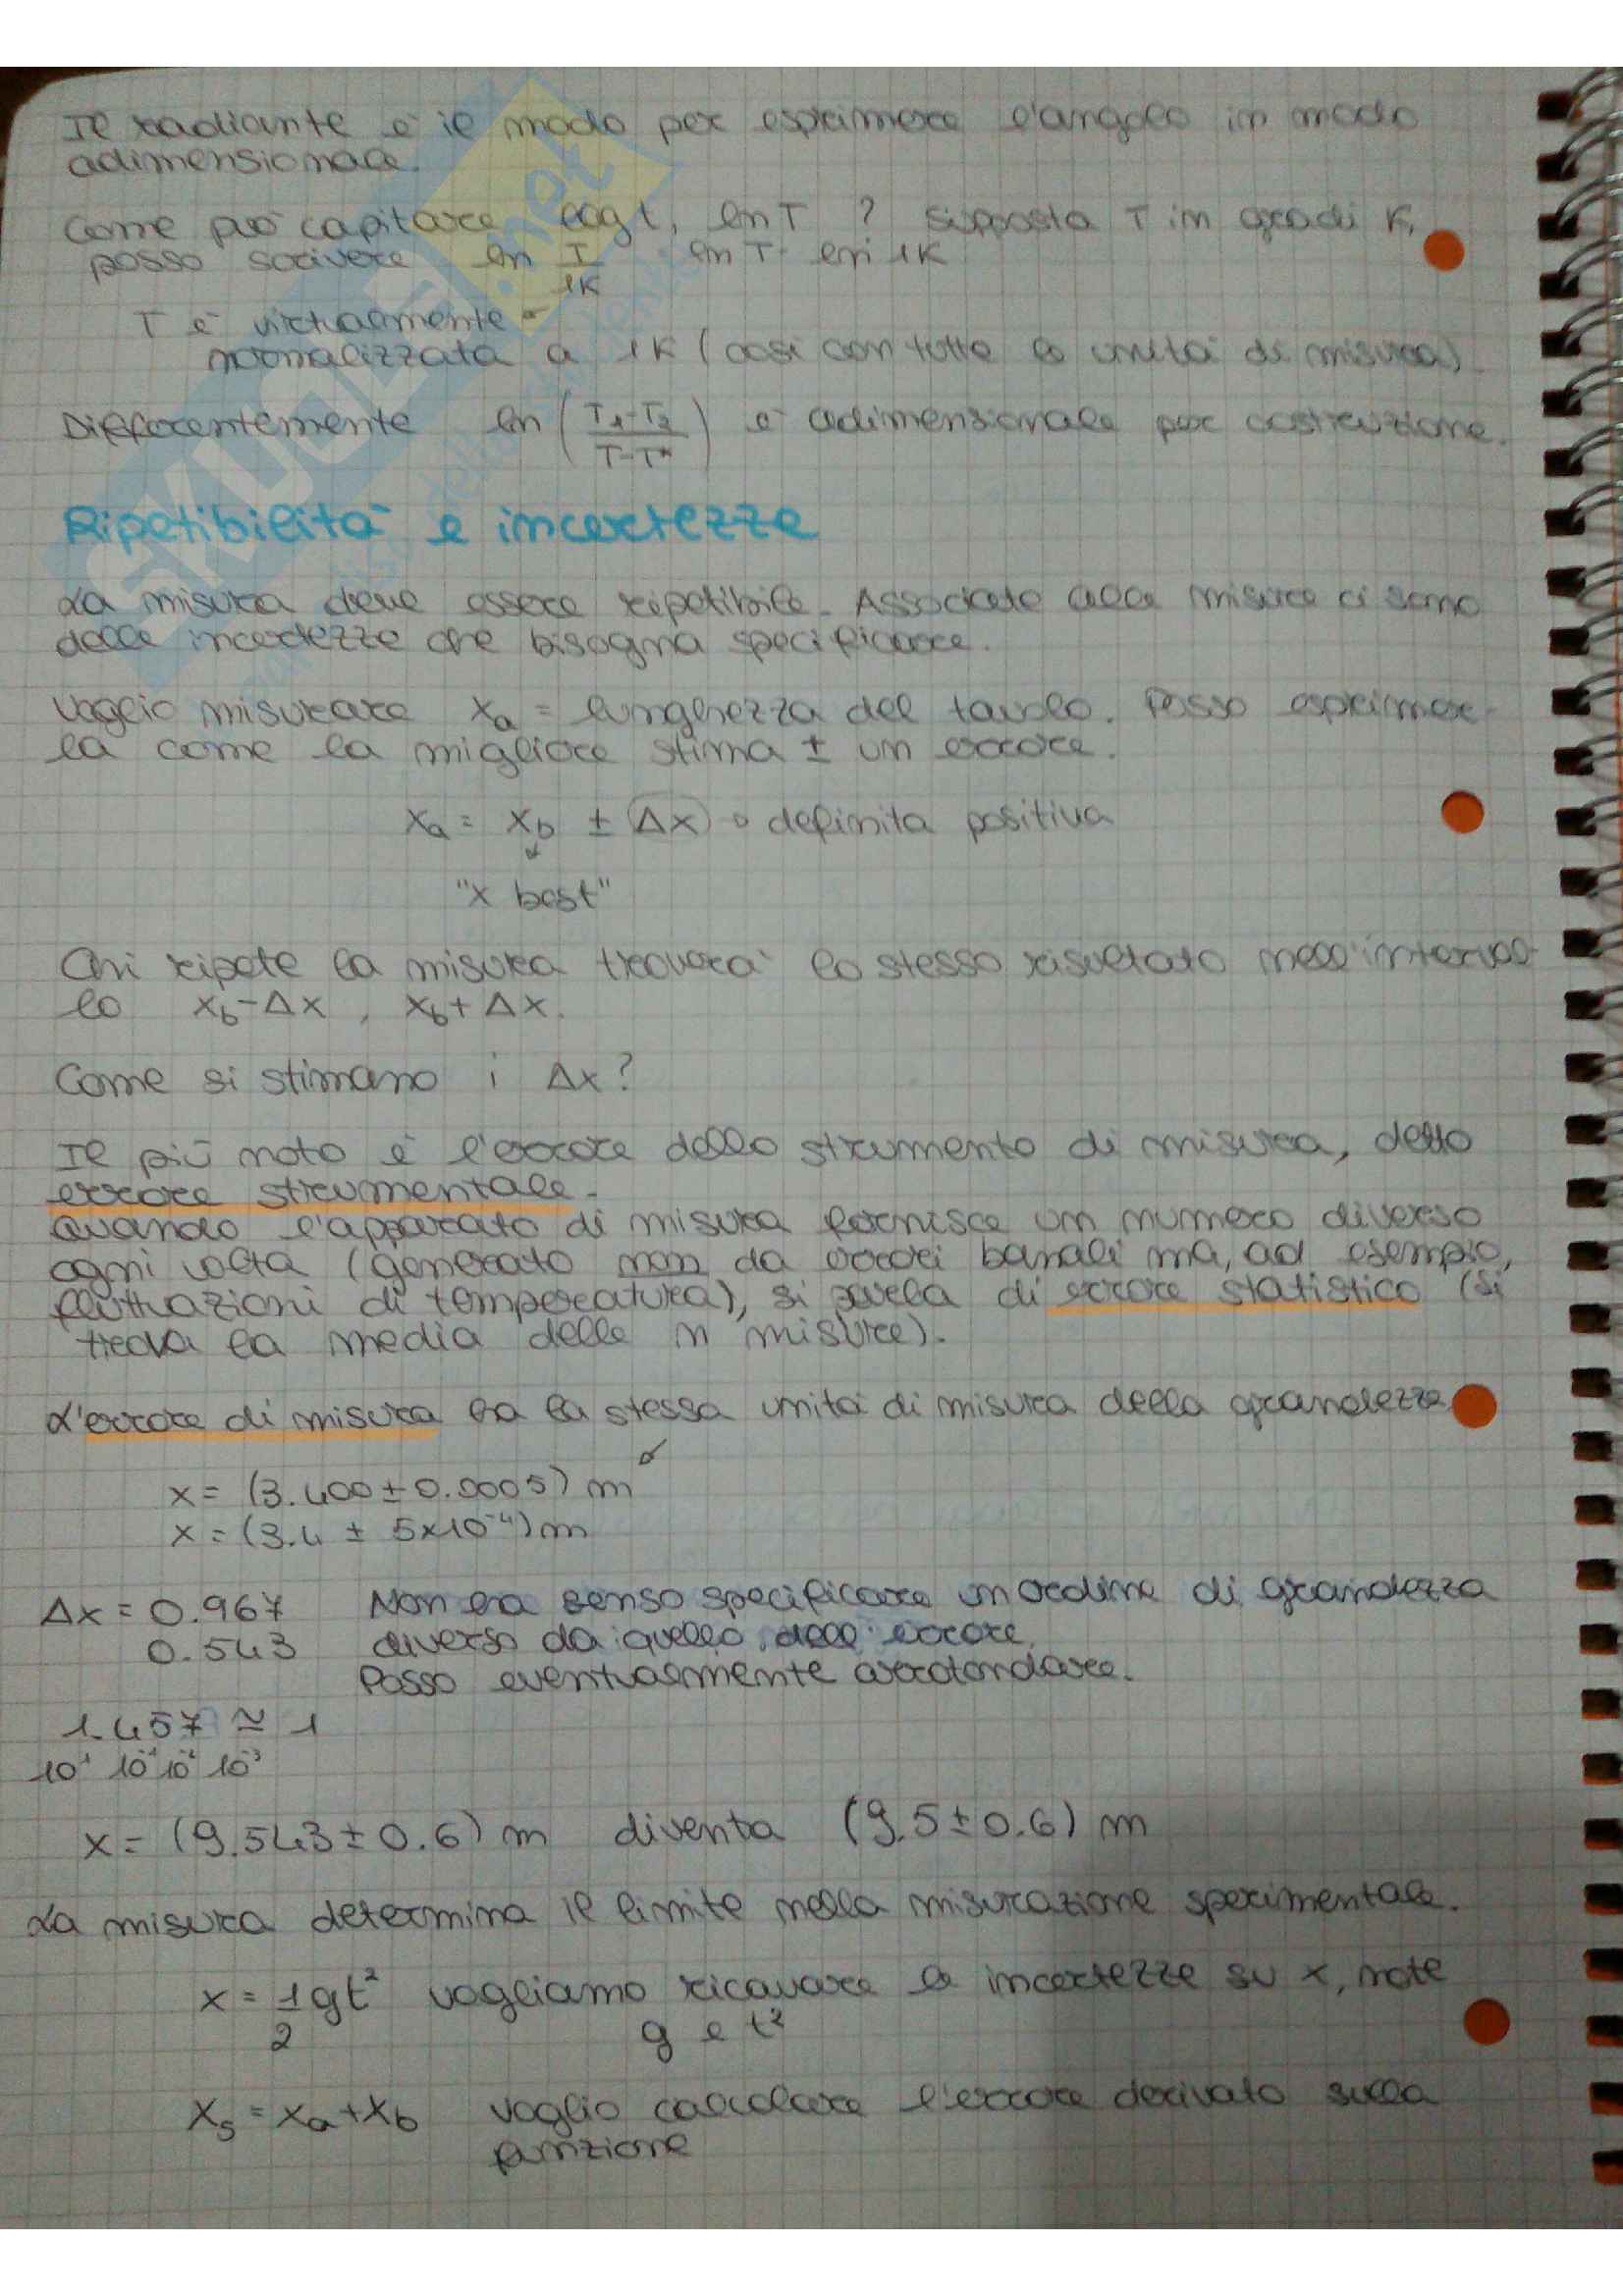 Il radiante è il modo per esprimere l'angolo in modo
adimensionale.
Come può capitare log t, ln T ? Supposta T in gradi K,
posso scrivere ln T/1K = ln T - ln 1K
T è virtualmente
normalizzata a 1K (così con tutte le unità di misura)
Differentemente ln (T₁-T₂ / T-T*) è adimensionale per costruzione.
Ripetibilità e incertezze
La misura deve essere ripetibile. Associate alla misura ci sono
delle incertezze che bisogna specificare.
Voglio misurare xₐ = lunghezza del tavolo. Posso esprimer
la come la migliore stima ± un errore.
xₐ = x_b ± Δx definita positiva
"x best"
Chi ripete la misura troverà lo stesso risultato nell'interval
lo x_b-Δx , x_b+Δx.
Come si stimano i Δx?
Il più noto è l'errore dello strumento di misura, detto
errore strumentale.
Quando l'apparato di misura fornisce un numero diverso
ogni volta (generato non da errori banali ma, ad esempio,
fluttuazioni di temperatura), si parla di errore statistico (si
trova la media delle n misure).
L'errore di misura ha la stessa unità di misura della grandezza
x = (3.400±0.0005) m
x = (3.4 ± 5x10⁻⁴) m
Δx = 0.967 Non ha senso specificare un ordine di grandezza
0.543 diverso da quello dell'errore.
Posso eventualmente arrotondare.
1.457 ≅ 1
10¹ 10⁻¹ 10⁻² 10⁻³
x = (9.543±0.6) m diventa (9.5±0.6) m
La misura determina il limite nella misurazione sperimentale.
x = 1/2 gt² vogliamo ricavare le incertezze su x, note
g e t²
xₛ = xₐ+x_b voglio calcolare l'errore derivato sulla
funzione